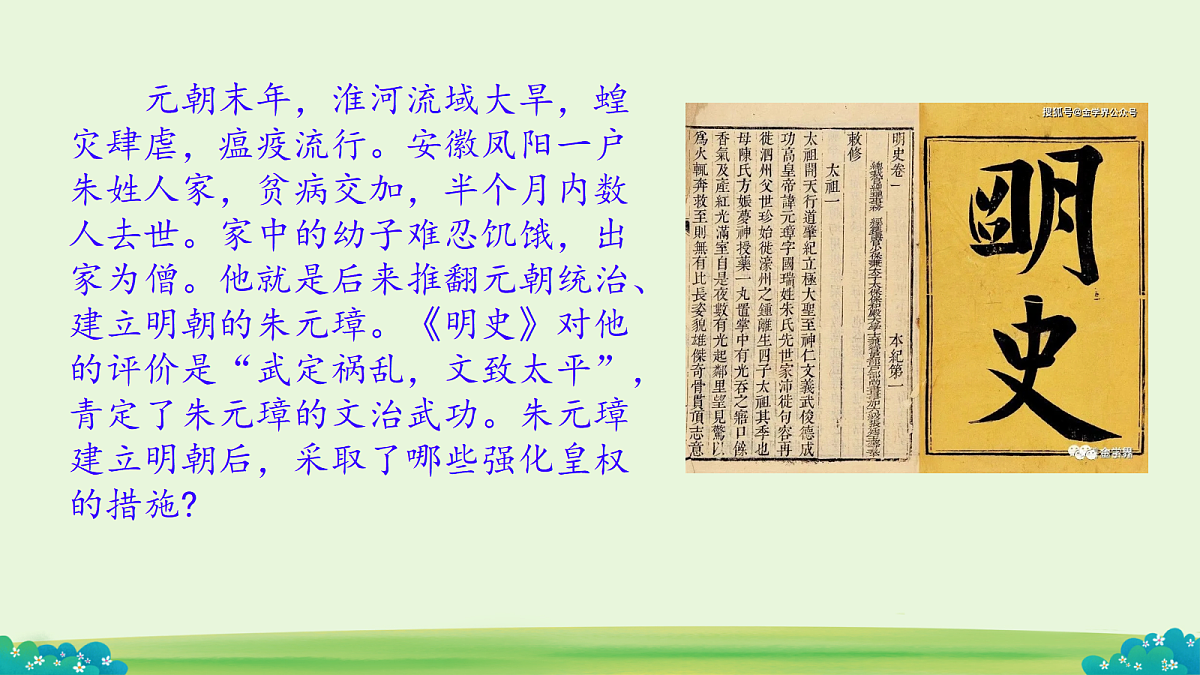 元朝末年，淮河流域大旱，蝗
灾肆虐，瘟疫流行。安徽凤阳一户
朱姓人家，贫病交加，半个月内数
人去世。家中的幼子难忍饥饿，出
家为僧。他就是后来推翻元朝统治、
建立明朝的朱元璋。《明史》对他
的评价是“武定祸乱，文致太平”，
青定了朱元璋的文治武功。朱元璋
建立明朝后，采取了哪些强化皇权
的措施?
搜狐号@金学界公众号
明史卷一
本紀第一
敕修
太祖一
太祖開天行道肇紀立極大聖至神仁文義武俊德成
功高皇帝諱元璋字國瑞姓朱氏先世家沛徙句容再
徙泗州父世珍始徙濠州之鍾離生四子太祖其季也
母陳氏方娠夢神授藥一丸置掌中有光吞之寤口餘
香氣及產紅光滿室自是夜數有光起鄰里望見驚以
爲火輒奔救至則無有比長姿貌雄傑奇骨貫頂志意
明史
金学界